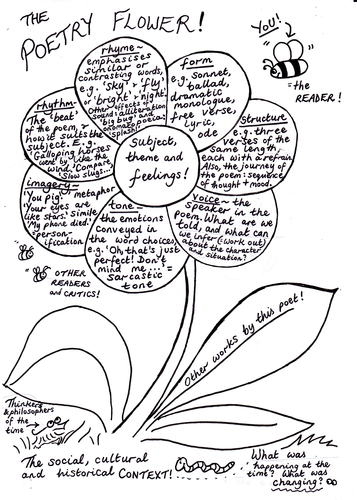 THE
POETRY FLOWER!
YOU!
= the
READER!
rhyme~
emphasises
similar or
contrasting words,
e.g. 'sky' & 'fly'
or 'bright' & 'night'.
Other effects
sound: alliteration
'big bug' and
onomatopoeia:
'splish!'
form
e.g. sonnet,
ballad,
dramatic
monologue,
free verse,
lyric,
ode
rhythm~
The 'beat'
of the poem, &
how it suits the
subject. E.g.
'Galloping horses
went by like the
wind.' Compare,
'Slow slugs...'
Structure
e.g. three
verses of the
same length,
each with a refrain.
Also, the journey of
the poem: sequence
of thought & mood.
Subject,
theme and
feelings!
imagery~
'You pig.' metaphor
'Your eyes are
like stars.' simile
'My phone died.'
= person-
ification
tone~
the emotions
conveyed in
the word choices,
e.g. 'Oh that's just
perfect! Don't
mind me...' =
sarcastic
tone
voice~ the
speaker in the
poem. What are we
told, and what can
we infer (=work out)
about the character
and situation?
= OTHER
READERS
and CRITICS!
Other works by this poet!
Thinkers
& philosophers
of the
time
The social, cultural
and historical CONTEXT!
What was
happening at the
time? What was
changing?